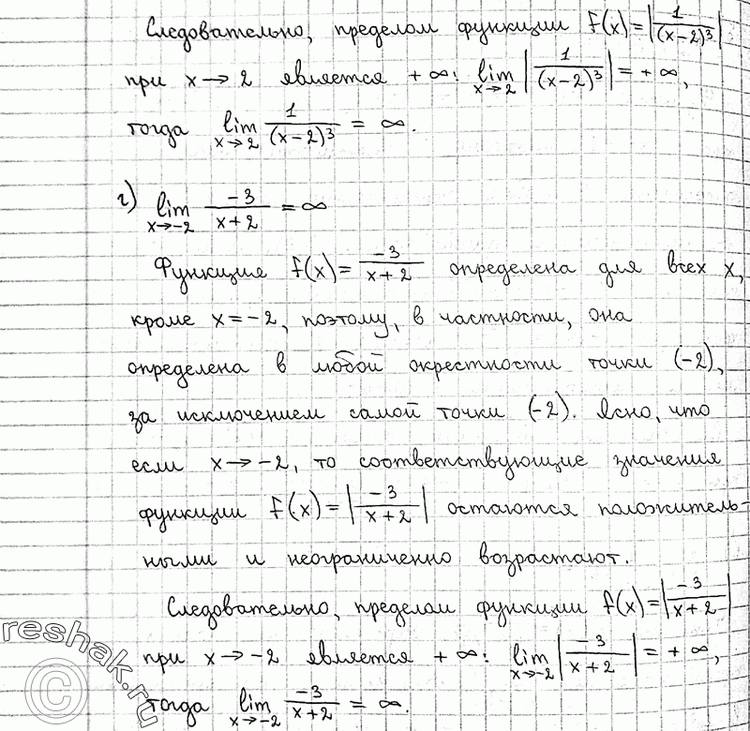 Следовательно, пределом функции f(x)=|1/(x-2)³|
при x→2 является +∞: lim x→2 |1/(x-2)³| = +∞,
тогда lim x→2 1/(x-2)³ = ∞.
г) lim x→-2 -3/(x+2) = ∞
Функция f(x)= -3/(x+2) определена для всех x,
кроме x=-2, поэтому, в частности, она
определена в любой окрестности точки (-2),
за исключением самой точки (-2). Ясно, что
если x→-2, то соответствующие значения
функции f(x)=|-3/(x+2)| остаются положитель-
ными и неограниченно возрастают.
Следовательно, пределом функции f(x)=|-3/(x+2)|
при x→-2 является +∞: lim x→-2 |-3/(x+2)| = +∞,
тогда lim x→-2 -3/(x+2) = ∞.
reshak.ru
©